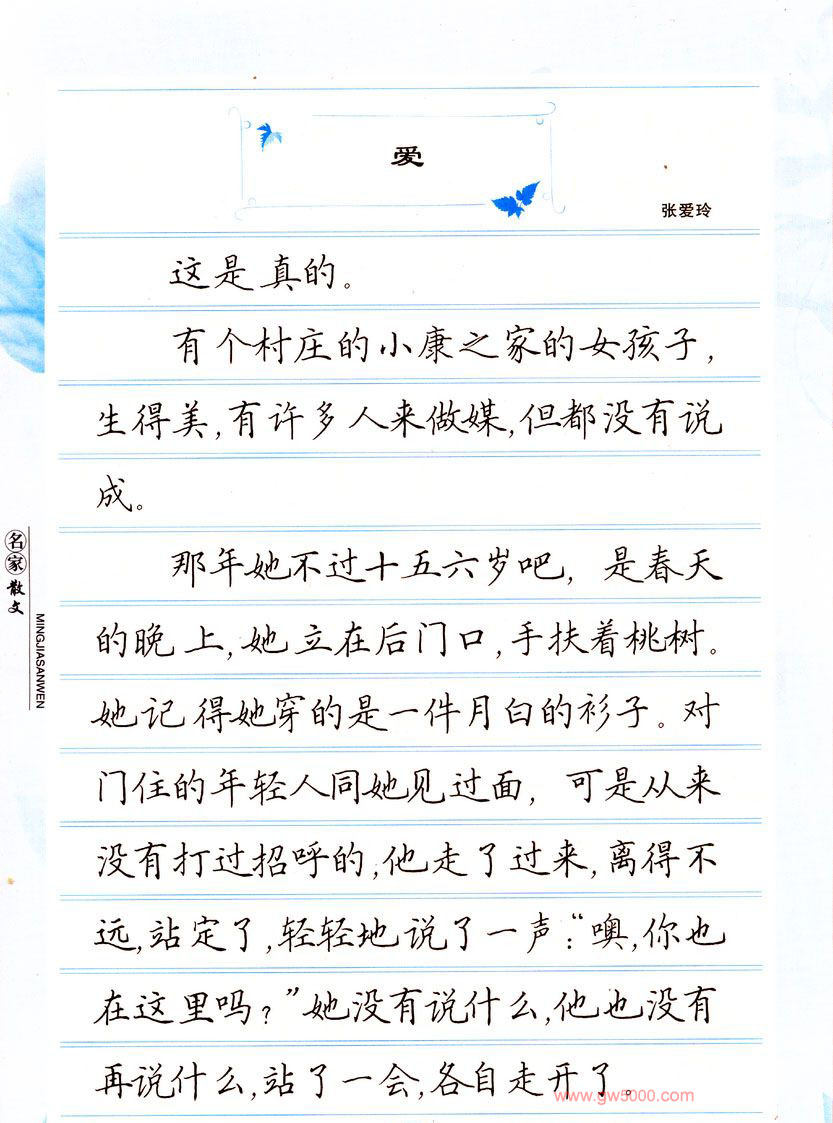 爱
张爱玲
这是真的。
有个村庄的小康之家的女孩子，
生得美，有许多人来做媒，但都没有说
成。
那年她不过十五六岁吧，是春天
的晚上，她立在后门口，手扶着桃树。
她记得她穿的是一件月白的衫子。对
门住的年轻人同她见过面，可是从来
没有打过招呼的，他走了过来，离得不
远，站定了，轻轻地说了一声：“噢，你也
在这里吗？”她没有说什么，他也没有
再说什么，站了一会，各自走开了。
名家散文
MINGJIASANWEN
www.gw5000.com